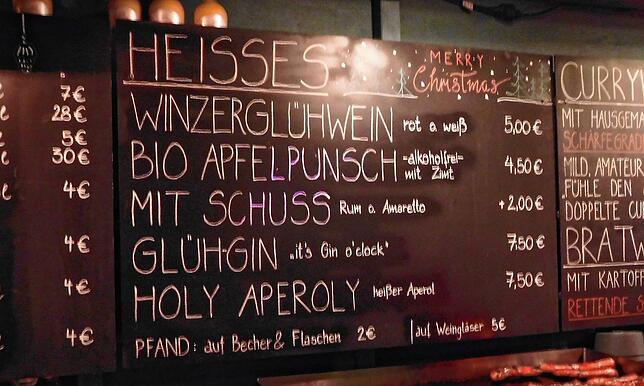 7€
28€
5€
30€
4€
4€
4€
4€
HEISSES
MERRY
Christmas
WINZERGLÜHWEIN rot o. weiß 5,00€
BIO APFELPUNSCH =alkoholfrei= mit Zimt 4,50€
MIT SCHUSS Rum o. Amaretto +2,00€
GLÜH-GIN „it's Gin o'clock" 7,50€
HOLY APEROLY heißer Aperol 7,50€
PFAND: auf Becher & Flaschen 2€ | auf Weingläser 5€
MIT
MILD, AMATEUR
FÜHLE DEN
DOPPELTE
MIT
RETTENDE